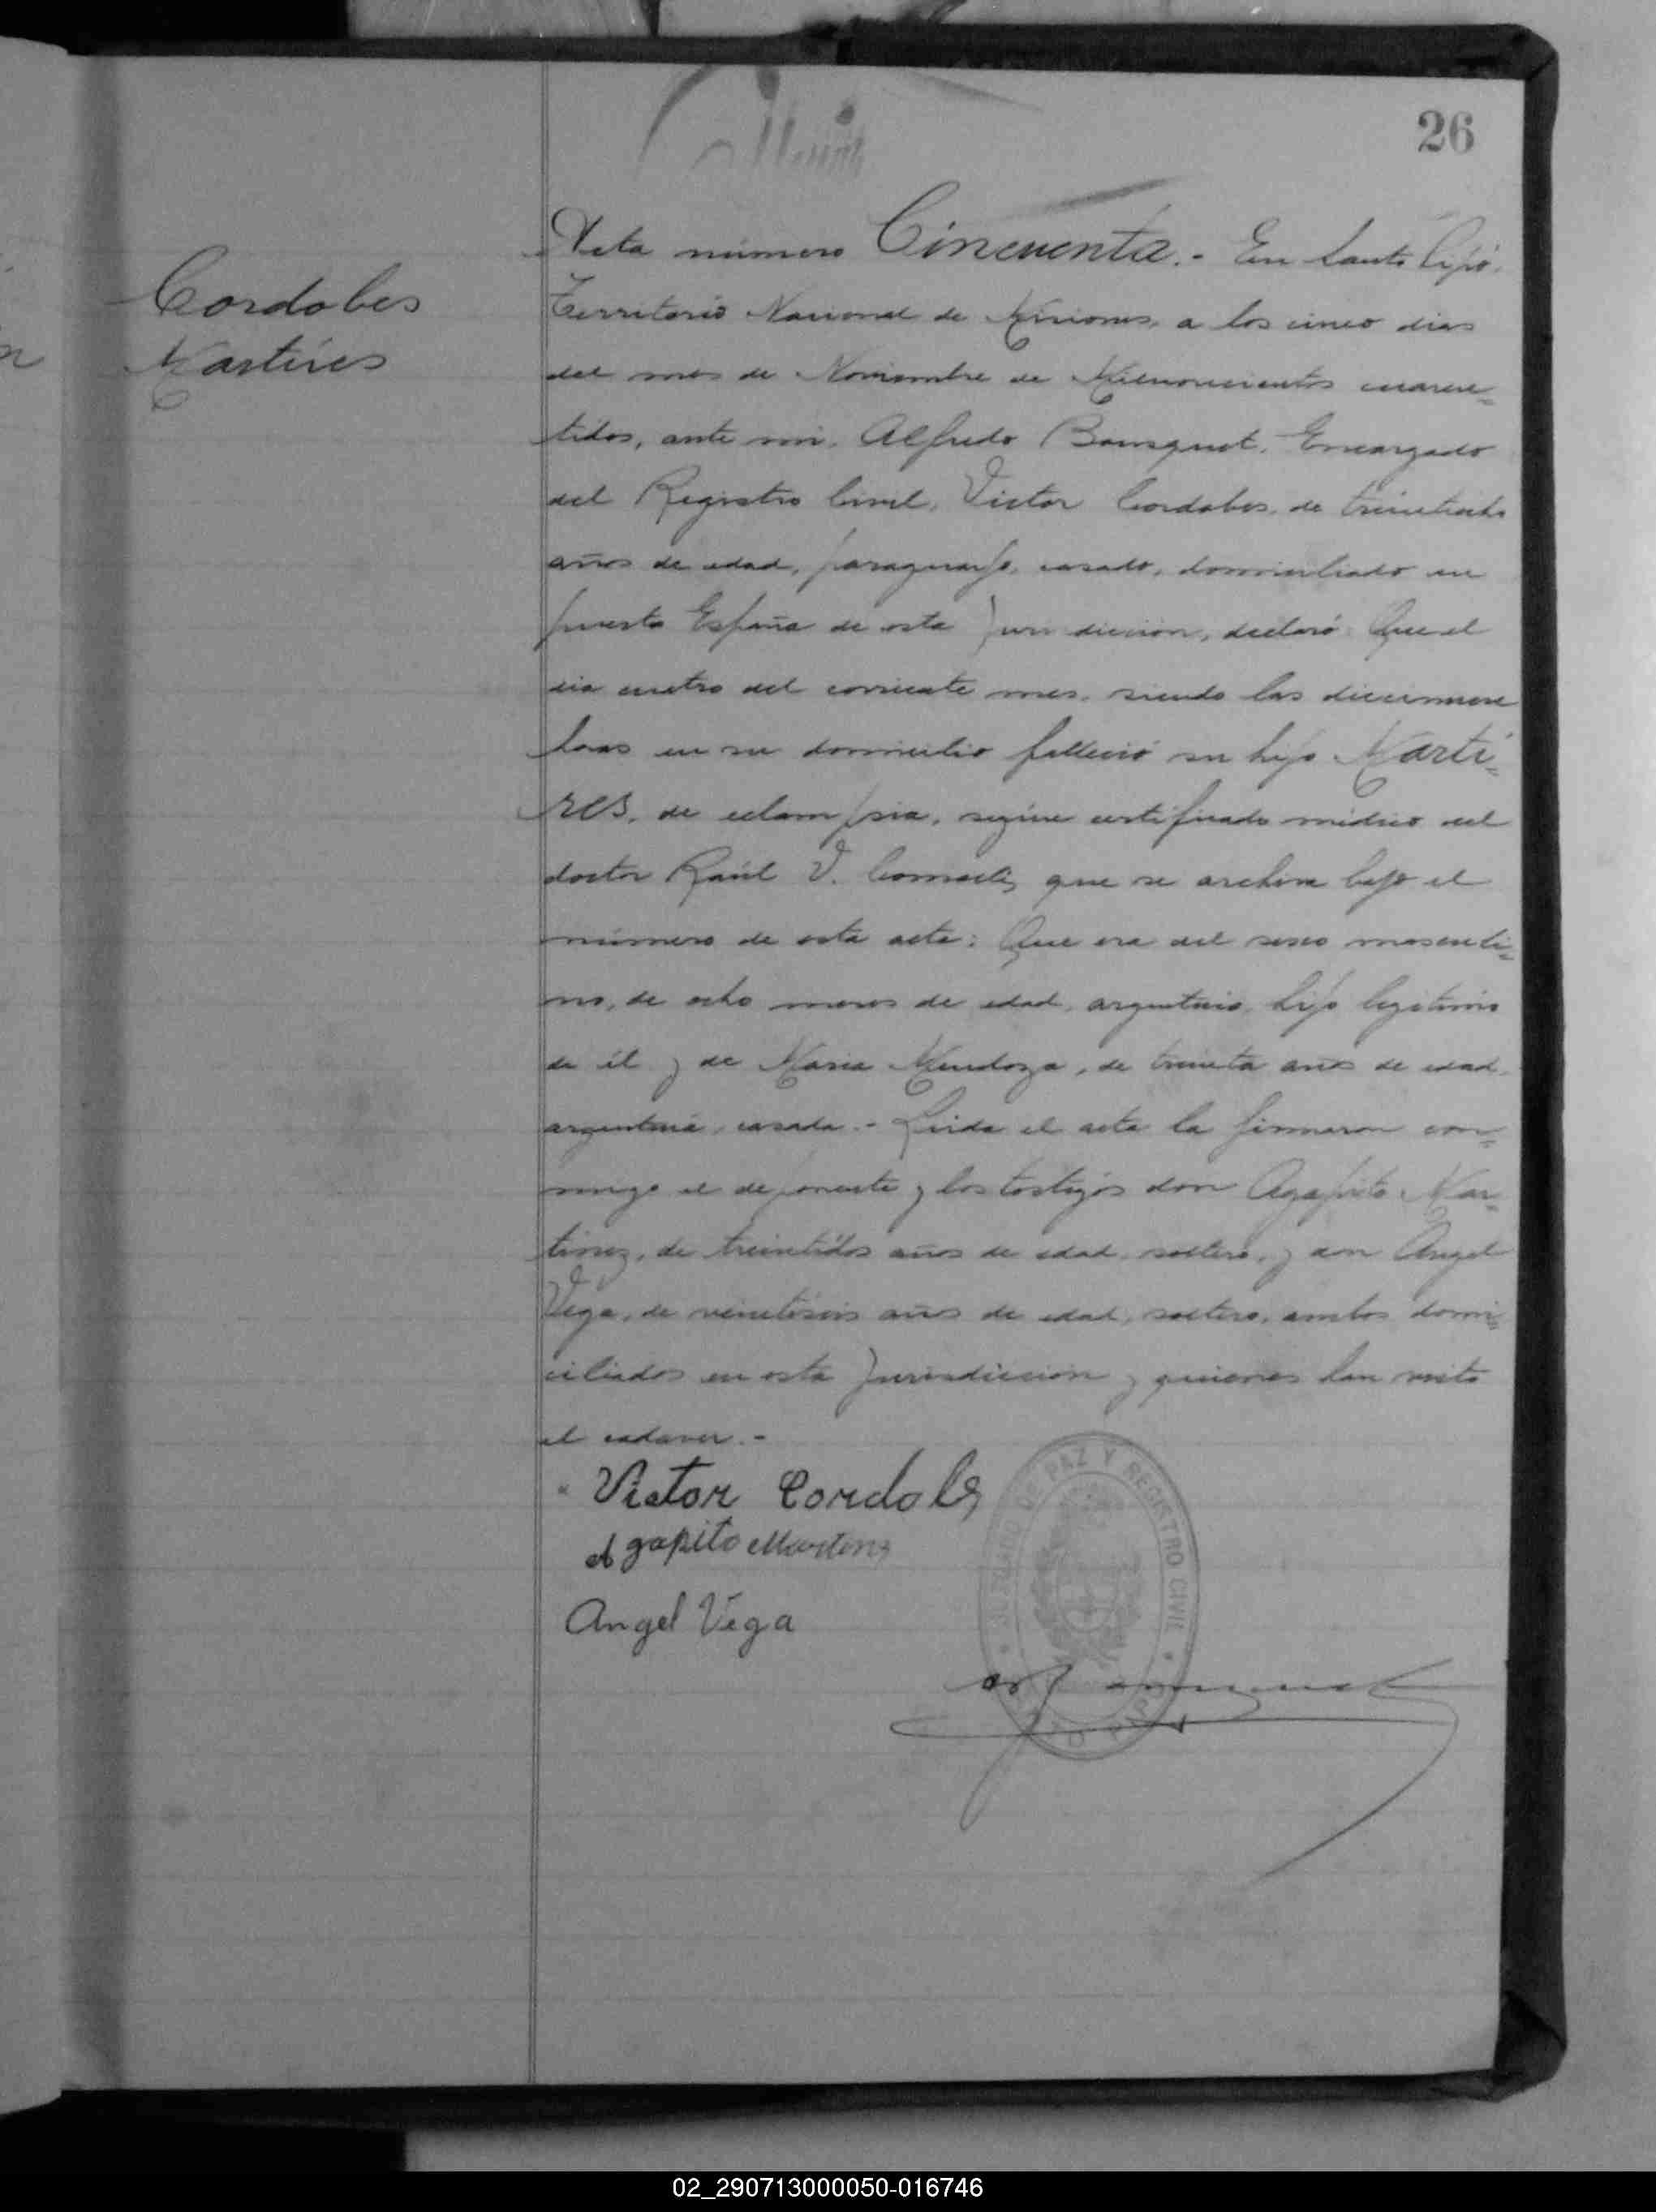 26
Cordobes
Martires
Acta número Cincuenta.- En Santo Pipó.
Territorio Nacional de Misiones, a los cinco dias
del mes de Noviembre de Milnovecientos cuaren=
tidos, ante mi, Alfredo Bousquet, Encargado
del Registro Civil, Victor Cordobes, de treintiocho
años de edad, paraguayo, casado, domiciliado en
puerto España de esta Jurisdiccion, declaró: Que el
dia cuatro del corriente mes, siendo las diecinueve
horas en su domicilio falleció su hijo Marti=
res, de eclampsia, según certificado médico del
doctor Raúl V. que se archiva bajo el
número de esta acta: Que era del sexo masculi=
no, de ocho meses de edad, argentino, hijo legitimo
de él y de Maria Mendoza, de treinta años de edad,
argentina, casada.- Leida el acta la firmaron con=
migo el deponente y los testigos don Agapito Mar=
tinez, de treintidos años de edad, soltero, y don Angel
Vega, de veintiseis años de edad, soltero, ambos domi=
ciliados en esta Jurisdiccion y quienes han visto
el cadaver.-
Victor Cordobes
Agapito Martinez
Angel Vega
JUZGADO DE PAZ Y REGISTRO CIVIL
02_290713000050-016746